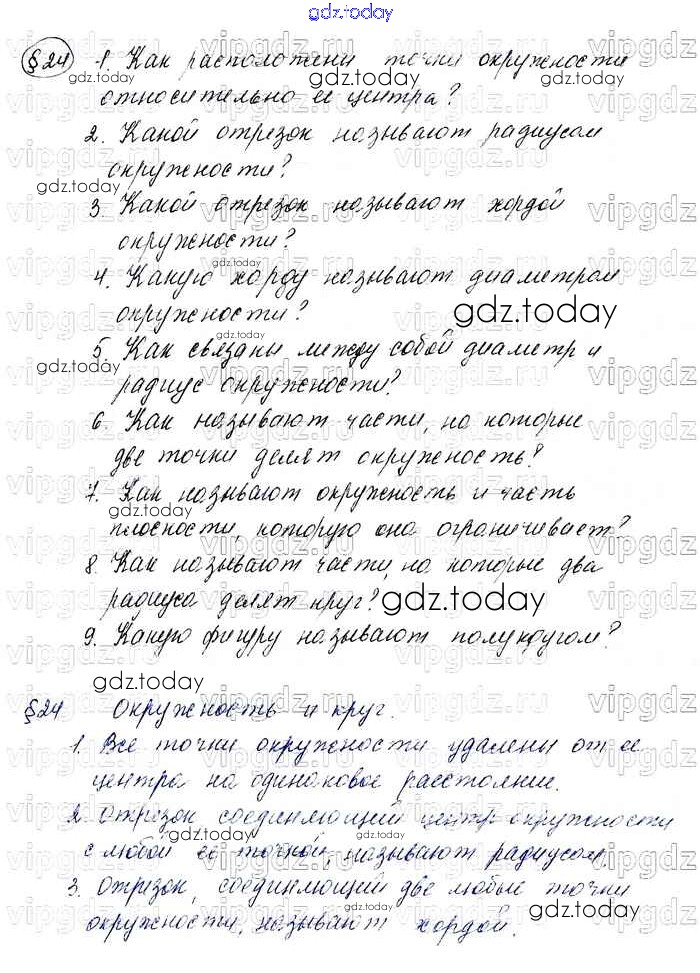 gdz.today
§24 1. Как расположены точки окружности
относительно её центра?
2. Какой отрезок называют радиусом
окружности?
3. Какой отрезок называют хордой
окружности?
4. Какую хорду называют диаметром
окружности?
5. Как связаны между собой диаметр и
радиус окружности?
6. Как называют части, на которые
две точки делят окружность?
7. Как называют окружность и часть
плоскости, которую она ограничивает?
8. Как называют части, на которые два
радиуса делят круг?
9. Какую фигуру называют полукругом?
§24 Окружность и круг.
1. Все точки окружности удалены от её
центра на одинаковое расстояние.
2. Отрезок соединяющий центр окружности
с любой её точкой, называют радиусом.
3. Отрезок, соединяющий две любые точки
окружности, называют хордой.